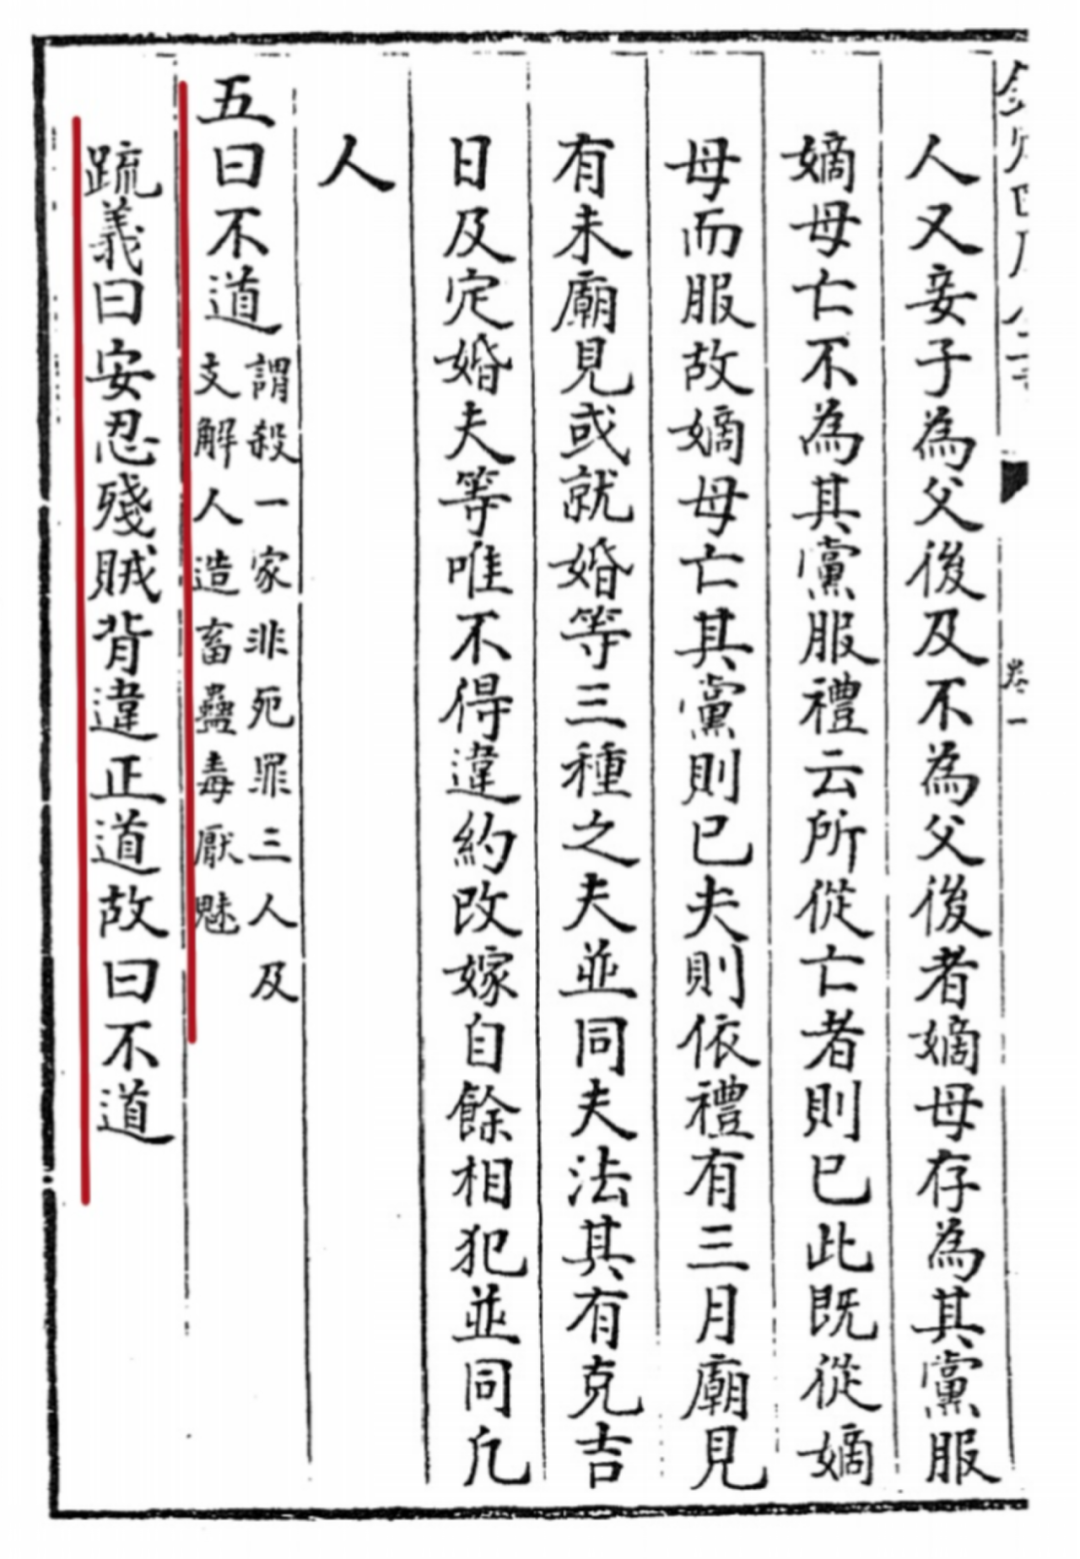 卷一
人又妾子為父後及不為父後者嫡母存為其黨服
嫡母亡不為其黨服禮云所從亡者則已此既從嫡
母而服故嫡母亡其黨則已夫則依禮有三月廟見
有未廟見或就婚等三種之夫並同夫法其有克吉
日及定婚夫等唯不得違約改嫁自餘相犯並同凡
人
五曰不道
謂殺一家非死罪三人及
支解人造畜蠱毒厭魅
疏義曰安忍殘賊背違正道故曰不道